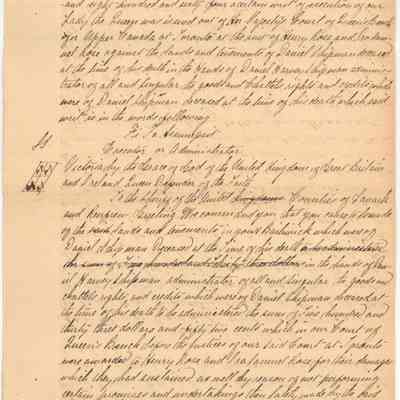 and eight hundred and sixty four a certain writ of execution of our
Lady the Queen was issued out of Her Majesty's Court of Queen's Bench
for Upper Canada at Toronto at the suit of Henry Rose and
Rose against the lands and tenements of Daniel Shipman deceased
at the time of his death in the hands of Daniel Harvey Shipman adminis-
trator of all and singular the goods and chattels rights and credits which
were of Daniel Shipman deceased at the time of his death which said
writ is in the words following
Executor or Administrator
Victoria by the Grace of God of the United Kingdom of Great Britain
and Ireland Queen Defender of the Faith
To the Sheriff of the United Kingdom Counties of Lanark
and Renfrew Greeting We command you that you cause to be made
of the lands and tenements in your Bailiwick which were of
Daniel Shipman Deceased at the time of his death
the sum of Two hundred and thirty three dollars in the hands of Dan
iel Harvey Shipman administrator of all and singular the goods and
chattels rights and credits which were of Daniel Shipman deceased at
the time of his death to be administered the sum of Two hundred and
thirty three dollars and fifty two cents which in our Court of
Queen's Bench before the Justices of our said Court at Toronto
were awarded to Henry Rose and Rose for their damages
which they had sustained as well by reason of not performing
certain promises and undertakings then lately made by the said